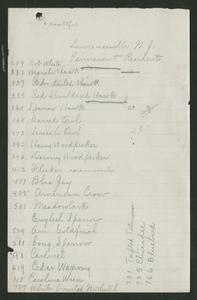 Lawrenceville N.J.
Permanent Residents
289 Bob White
331 Marsh Hawk
337 Red-tailed Hawk
339 Red Shouldered Hawk
360 Sparrow Hawk
368 Barred Owl
373 Screech Owl
393 Hairy Woodpecker
394 Downy Woodpecker
412 Flicker
477 Blue Jay
488 American Crow
501 Meadowlark
English Sparrow
529 Am Goldfinch
581 Song Sparrow
593 Cardinal
619 Cedar Waxwing
718 Carolina Wren
727 White breasted Nuthatch
23
Tufted Titmouse
735 Chickadee
766 Bluebird